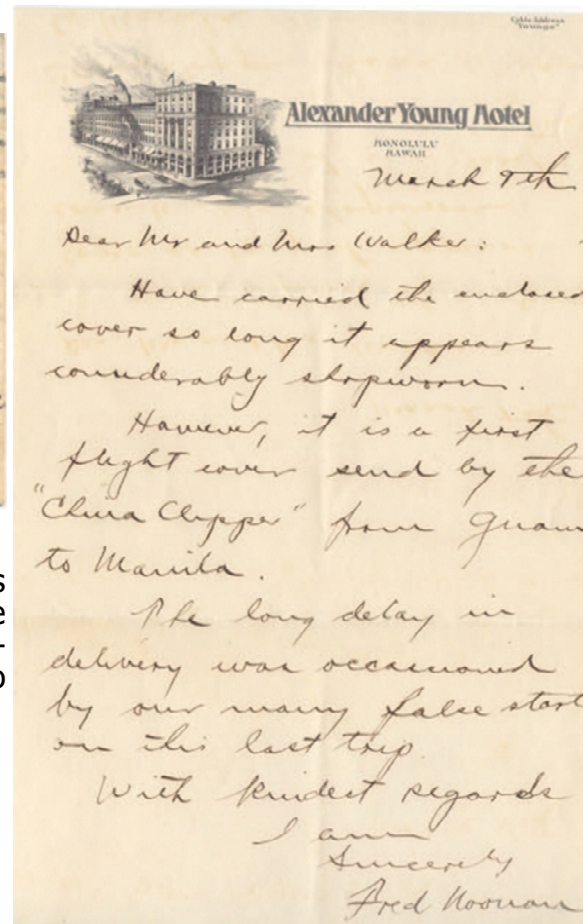 Cable Address
Alexander Young Hotel
HONOLULU
HAWAII
March 9th
Dear Mr and Mrs Walker:
Have carried the enclosed
cover so long it appears
considerably shopworn.
However, it is a first
flight cover send by the
"China Clipper" from Guam
to Manila.
The long delay in
delivery was occasioned
by our many false start
on this last trip.
With kindest regards
I am
Sincerely
Fred Noonan